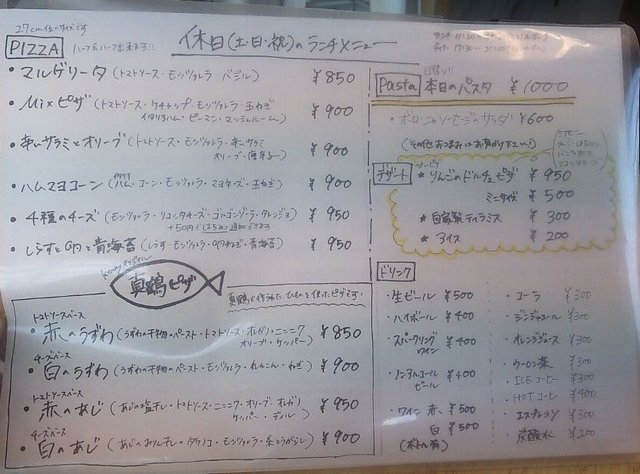 27cm位のサイズです
PIZZA ハーフ&ハーフ出来ます!
休日(土・日・祝)のランチメニュー
・マルゲリータ (トマトソース・モッツァレラ・バジル) ¥850
・Mixピザ (トマトソース・ケチャップ・モッツァレラ・玉ねぎ ¥900
イタリアハム・ピーマン・マッシュルーム)
・辛いサラミとオリーブ (トマトソース・モッツァレラ・辛いサラミ ¥900
オリーブ・唐辛子)
・ハムマヨコーン (ハム・コーン・モッツァレラ・マヨネーズ・玉ねぎ) ¥900
・4種のチーズ (モッツァレラ・リコッタチーズ・ゴルゴンゾーラ・タレッジョ) ¥950
+50円ではちみつ追加できます
・しらすと卵と青海苔 (しらす・モッツァレラ・卵・ねぎ・青海苔) ¥950
真鶴ピザ
真鶴で作った ひものを使ったピザです!
トマトソースベース
・赤いうずわ (うずわの干物・ペースト・トマトソース・オレガノ・ニンニク ¥850
オリーブ・ケッパー)
チーズベース
・白のうずわ (うずわの干物・ペースト・モッツァレラ・れんこん・ねぎ) ¥900
トマトソースベース
・赤のあじ (あじの塩干し・トマトソース・ニンニク・オリーブ・オレガノ ¥950
ケッパー・ディル)
チーズベース
・白のあじ (あじのみりん干し・タケノコ・モッツァレラ・糸とうがらし) ¥900
日替り!!
Pasta 本日のパスタ ¥1000
・ボローニャソーセージサラダ ¥600
(その他おつまみはお声がけ下さい!)
デザート
★りんごのドルチェピザ ¥950
ミニサイズ ¥500
★自家製ティラミス ¥300
★アイス ¥200
ドリンク
・生ビール ¥500
・ハイボール ¥400
・スパークリング ¥400
ワイン
・ノンアルコール ¥400
ビール
・ワイン 赤 ¥500
白 ¥500
(ボトル有)
・コーラ ¥300
・ジンジャエール ¥300
・オレンジジュース ¥300
・ウーロン茶 ¥300
・ICEコーヒー ¥300
・HOTコーヒー ¥400
・エスプレッソ ¥300
・炭酸水 ¥200